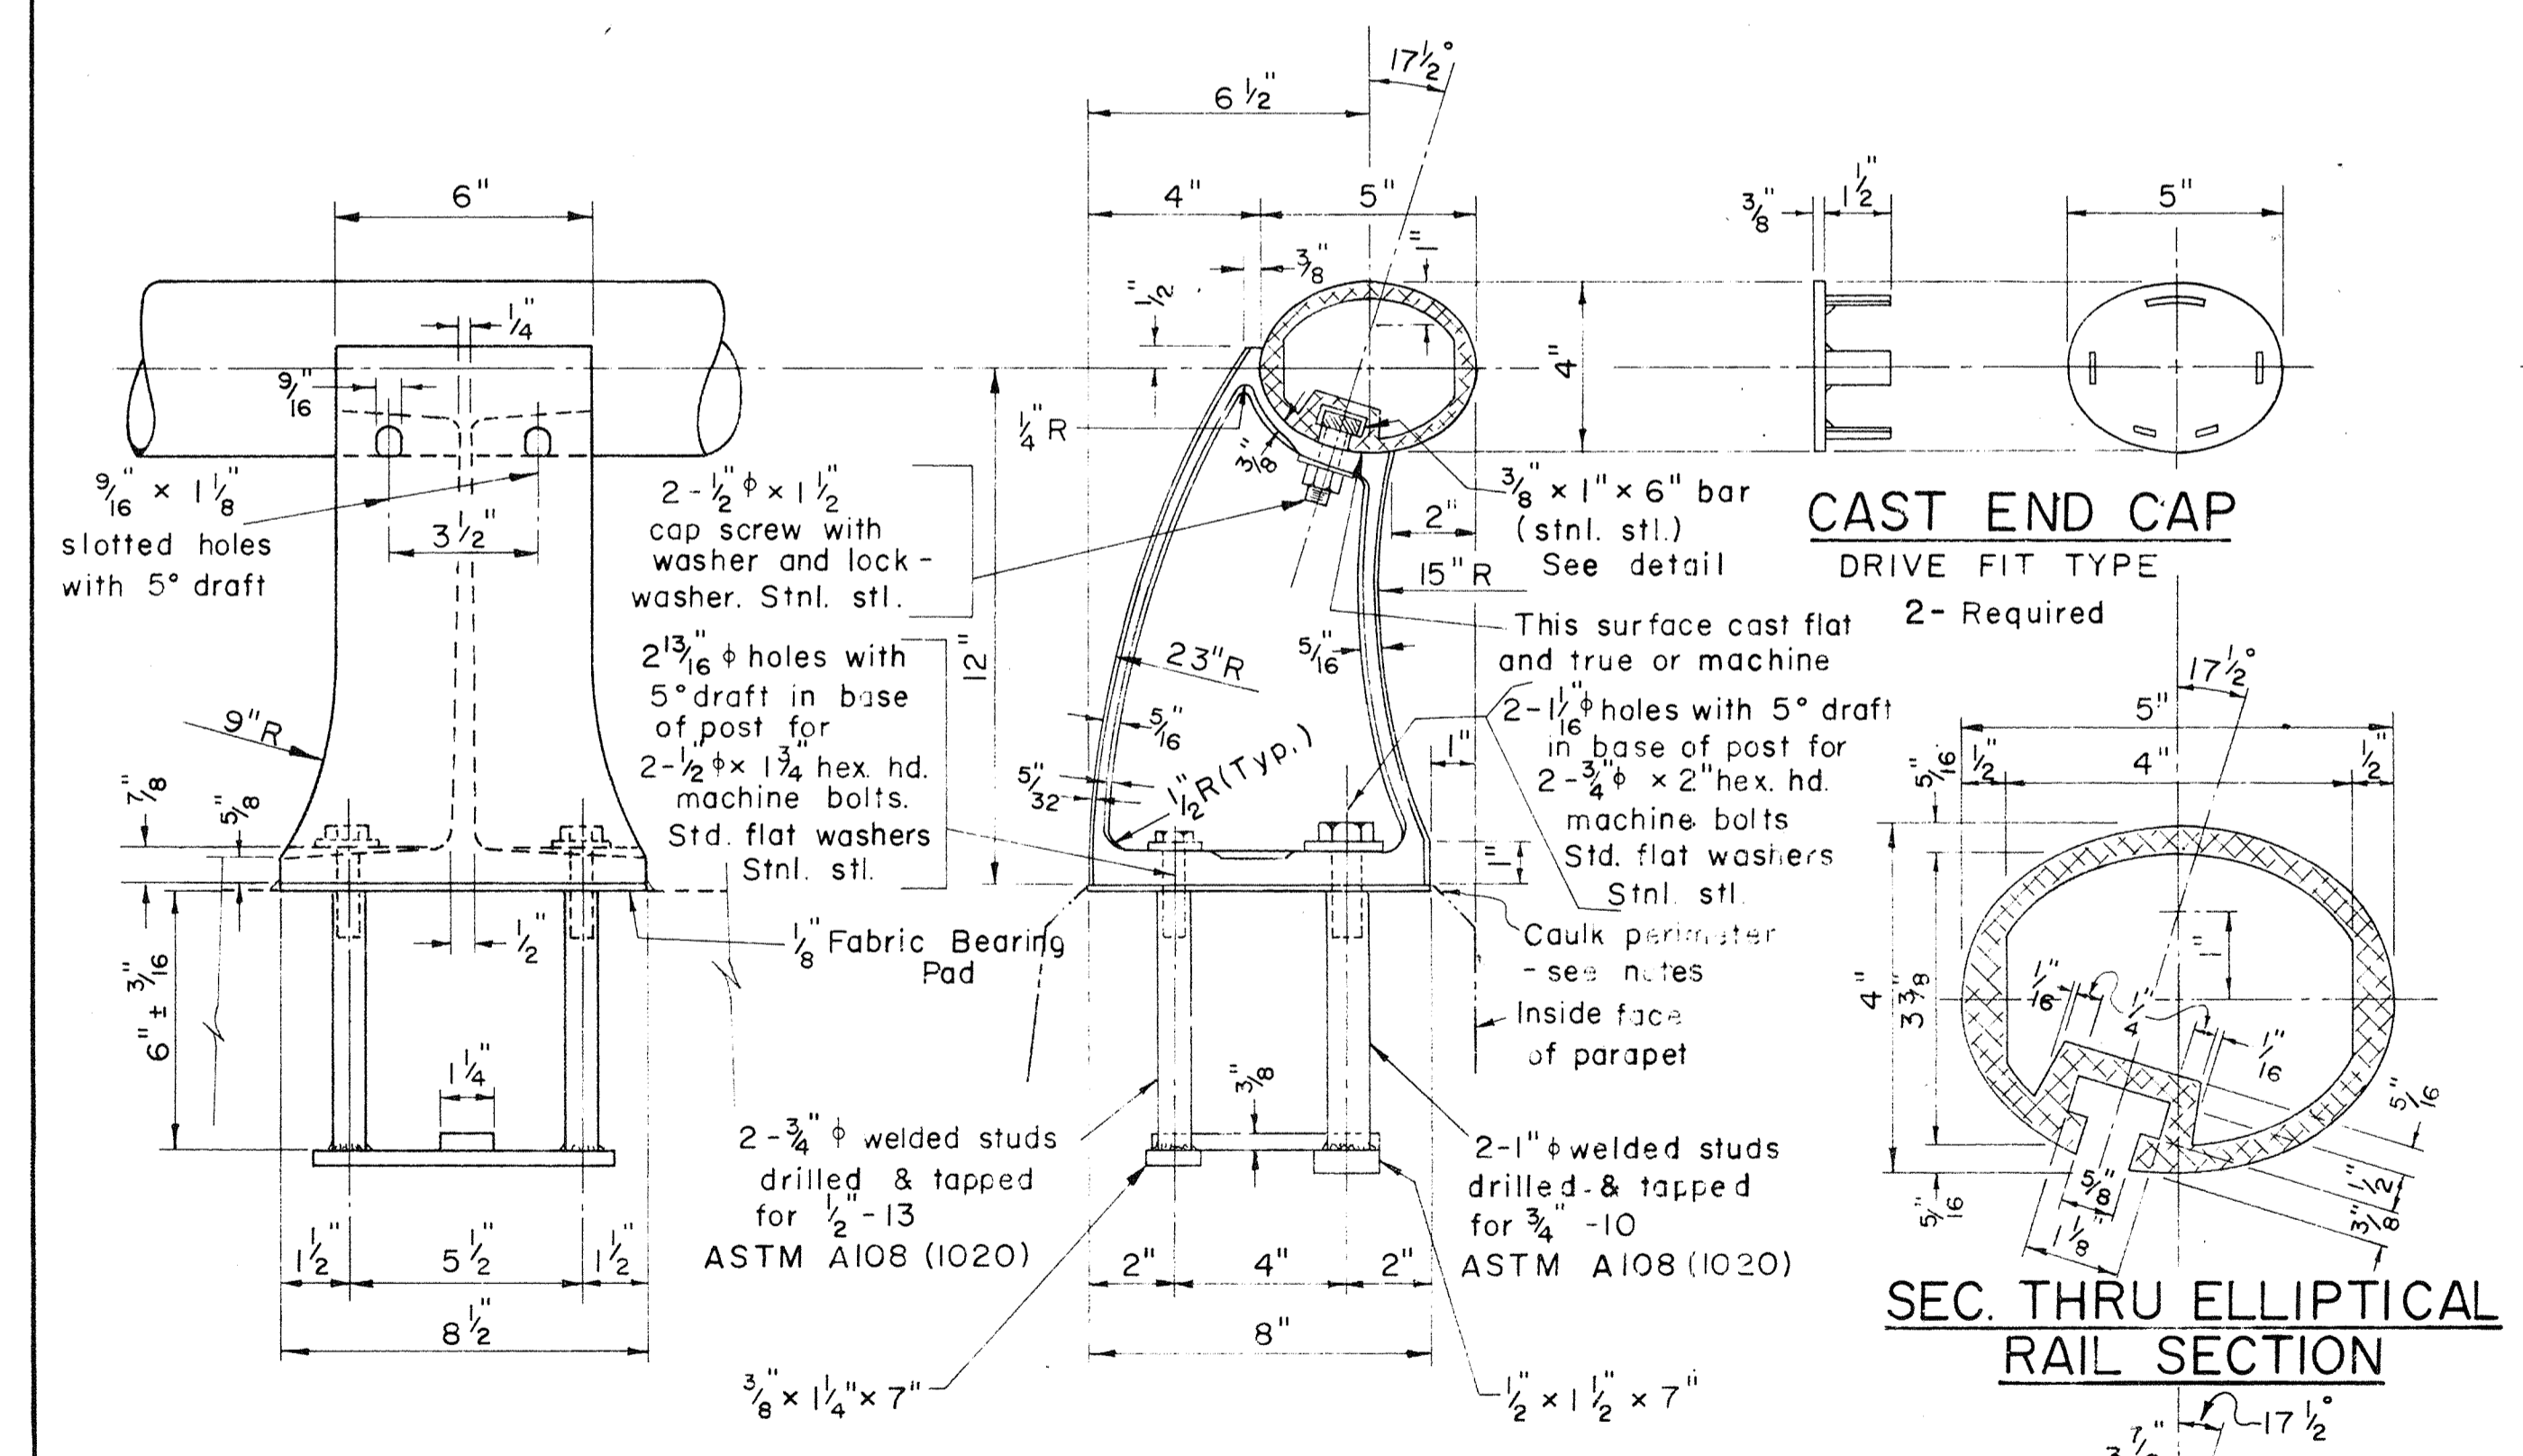 6"
1/4"
9/16"
9/16" x 1 1/8"
slotted holes
with 5° draft
3 1/2"
9"R
7/8"
5/8"
6" ± 3/16"
1/2"
1 1/4"
1 1/2"
5 1/2"
1 1/2"
8 1/2"
2-1/2" φ x 1 1/2"
cap screw with
washer and lock-
washer. Stnl. stl.
2 13/16" φ holes with
5° draft in base
of post for
2-1/2" φ x 1 3/4" hex. hd.
machine bolts.
Std. flat washers
Stnl. stl.
1/8" Fabric Bearing
Pad
2-3/4" φ welded studs
drilled & tapped
for 1/2"-13
ASTM A108 (1020)
3/8" x 1 1/4" x 7"
17 1/2°
6 1/2"
4"
5"
3/8"
1"
1/2"
4"
1/4" R
3/8"
12"
2"
15"R
23"R
5/16"
5/16"
5/32"
1/2" R (Typ.)
1"
1"
3/8"
2"
4"
2"
8"
3/8" x 1" x 6" bar
(stnl. stl.)
See detail
This surface cast flat
and true or machine
2-1 1/16" φ holes with 5° draft
in base of post for
2-3/4" φ x 2" hex. hd.
machine bolts
Std. flat washers
Stnl. stl.
Caulk perimeter
- see notes
Inside face
of parapet
2-1" φ welded studs
drilled & tapped
for 3/4" -10
ASTM A108 (1020)
1/2" x 1 1/2" x 7"
3/8"
1 1/2"
5"
CAST END CAP
DRIVE FIT TYPE
2- Required
17 1/2°
5"
5/16"
1/2"
4"
1/2"
4"
3 3/8"
1"
1/16"
1/4"
1/16"
5/16"
1/2"
3/8"
5/16"
5/8"
1 1/8"
SEC. THRU ELLIPTICAL
RAIL SECTION
17 1/2°